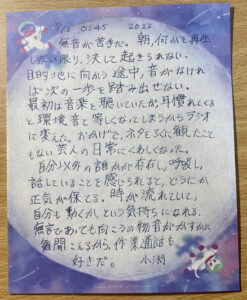 8/13 02:45 2022
無音が苦手だ。朝、何かを再生
しない限り、決して起きられない。
目的地に向かう途中、音がなけれ
ば次の一歩を踏み出せない。
最初は音楽を聴いていたが、耳慣れてくる
と環境音と等しくなってしまうからラジオ
に変えた。おかげで、ネタをろくに観たこと
もない芸人の日常にくわしくなった。
自分以外の誰かが存在し、呼吸し、
話していることを感じられると、どうにか
正気が保てる。時が流れていて、
自分も動くか、という気持ちになれる。
無言もあっても向こうの物音がかすかに
幾聞こえるから、作業通話も
好きだ。 小渕